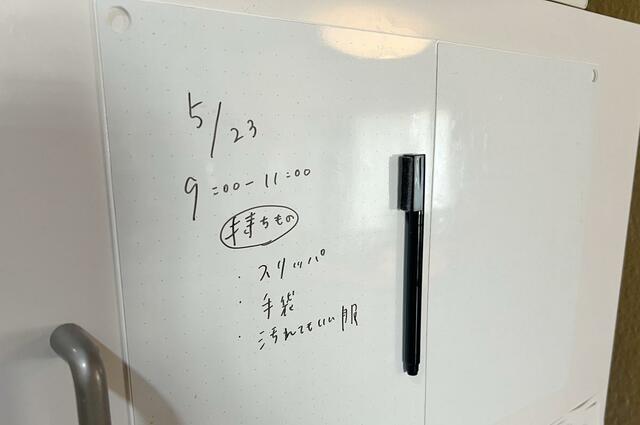 5/23
9:00-11:00
持ちもの
・スリッパ
・手袋
・汚れてもいい服